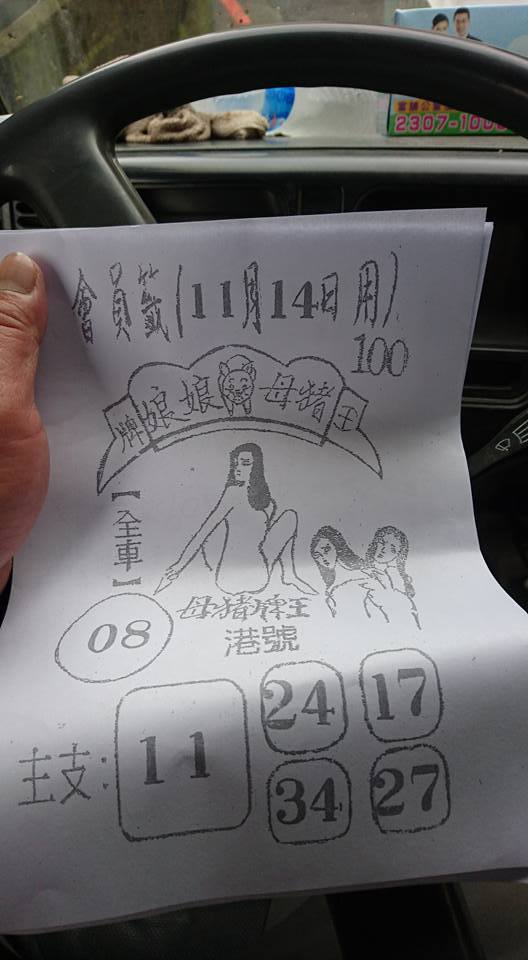 會員籤(11月14日用)
100
牌娘娘母猪王
【全車】
08
母猪牌王
港號
主支:
11
24 17
34 27
當舖公會
2307-100